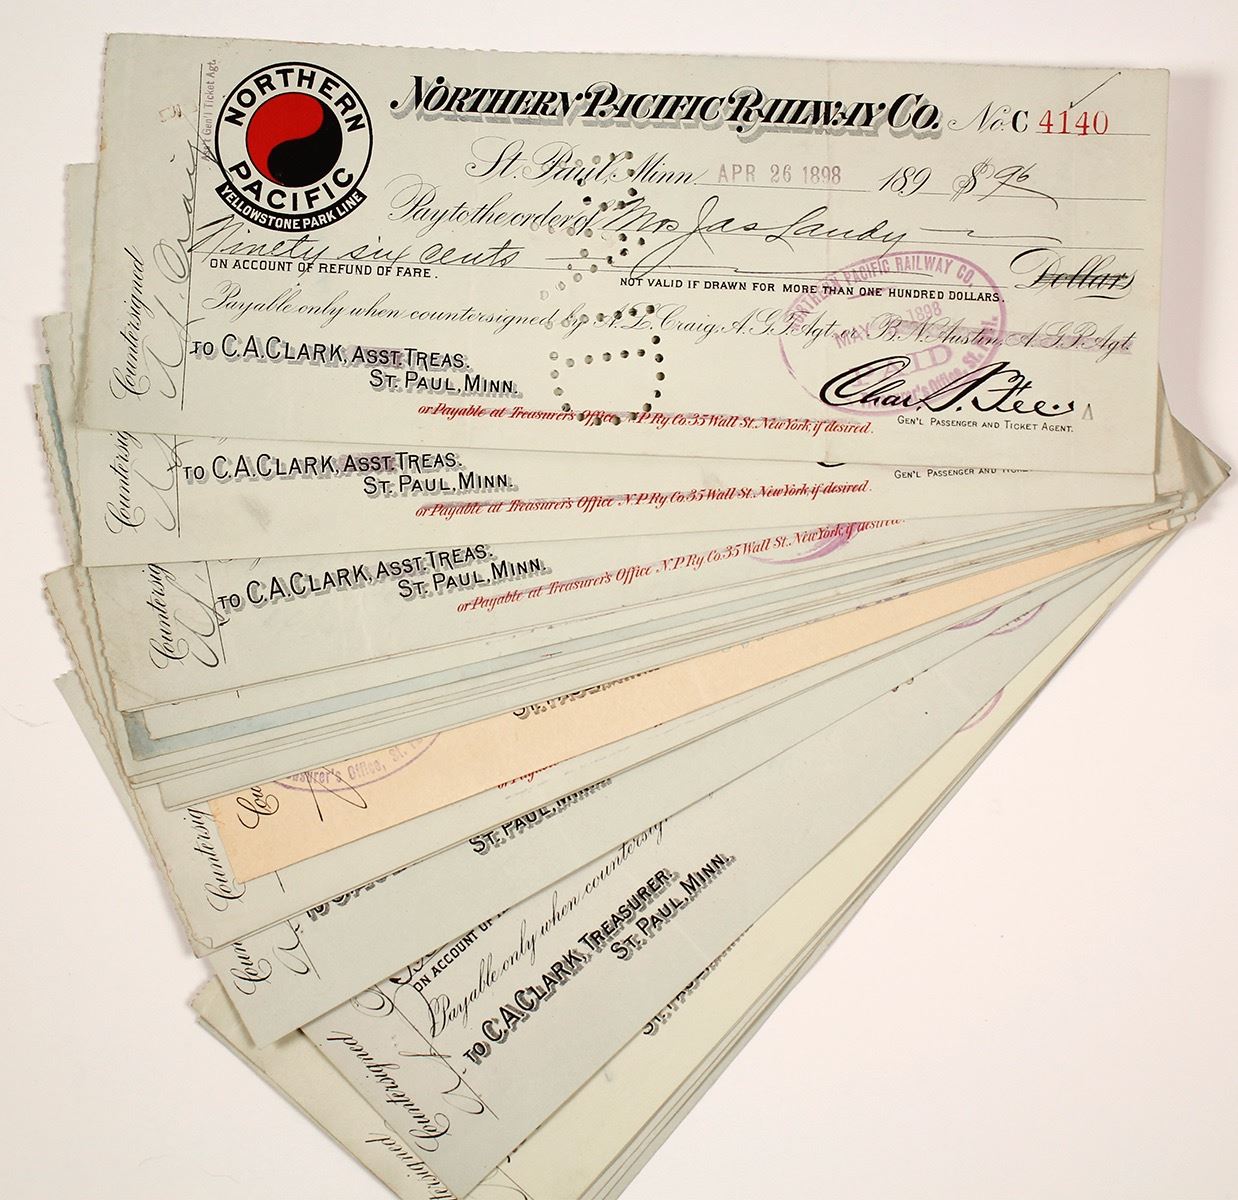 NORTHERN PACIFIC
YELLOWSTONE PARK LINE
Ass't Gen'l Ticket Agt.
NORTHERN PACIFIC RAILWAY CO. No. C 4140
St. Paul, Minn. APR 26 1898 189 $ 96
Pay to the order of Mrs Jas Landy
Ninety six cents Dollars
ON ACCOUNT OF REFUND OF FARE.
NOT VALID IF DRAWN FOR MORE THAN ONE HUNDRED DOLLARS.
Payable only when countersigned by A. L. Craig, A. G. P. Agt. or B. N. Austin, A. G. P. Agt.
NORTHERN PACIFIC RAILWAY CO.
MAY 1898
PAID
Treasurer's Office, St. Paul
TO C. A. CLARK, ASST. TREAS.
ST. PAUL, MINN.
Chas. S. Fee
GEN'L PASSENGER AND TICKET AGENT.
or Payable at Treasurer's Office N. P. Ry. Co. 35 Wall St. New York, if desired.
Countersigned
A. L. Craig
TO C. A. CLARK, ASST. TREAS.
ST. PAUL, MINN.
GEN'L PASSENGER AND
or Payable at Treasurer's Office N. P. Ry. Co. 35 Wall St. New York, if desired.
Countersig
TO C. A. CLARK, ASST. TREAS.
ST. PAUL, MINN.
or Payable at Treasurer's Office N. P. Ry. Co. 35 Wall St. New York, if desired.
Countersig
asurer's Office, St.
Cou
or Payable
ST. PAUL, MINN.
Countersig
Coun
ON ACCOUNT OF
Payable only when countersig
TO C. A. CLARK, TREASURER.
ST. PAUL, MINN.
Countersigned
tersigned